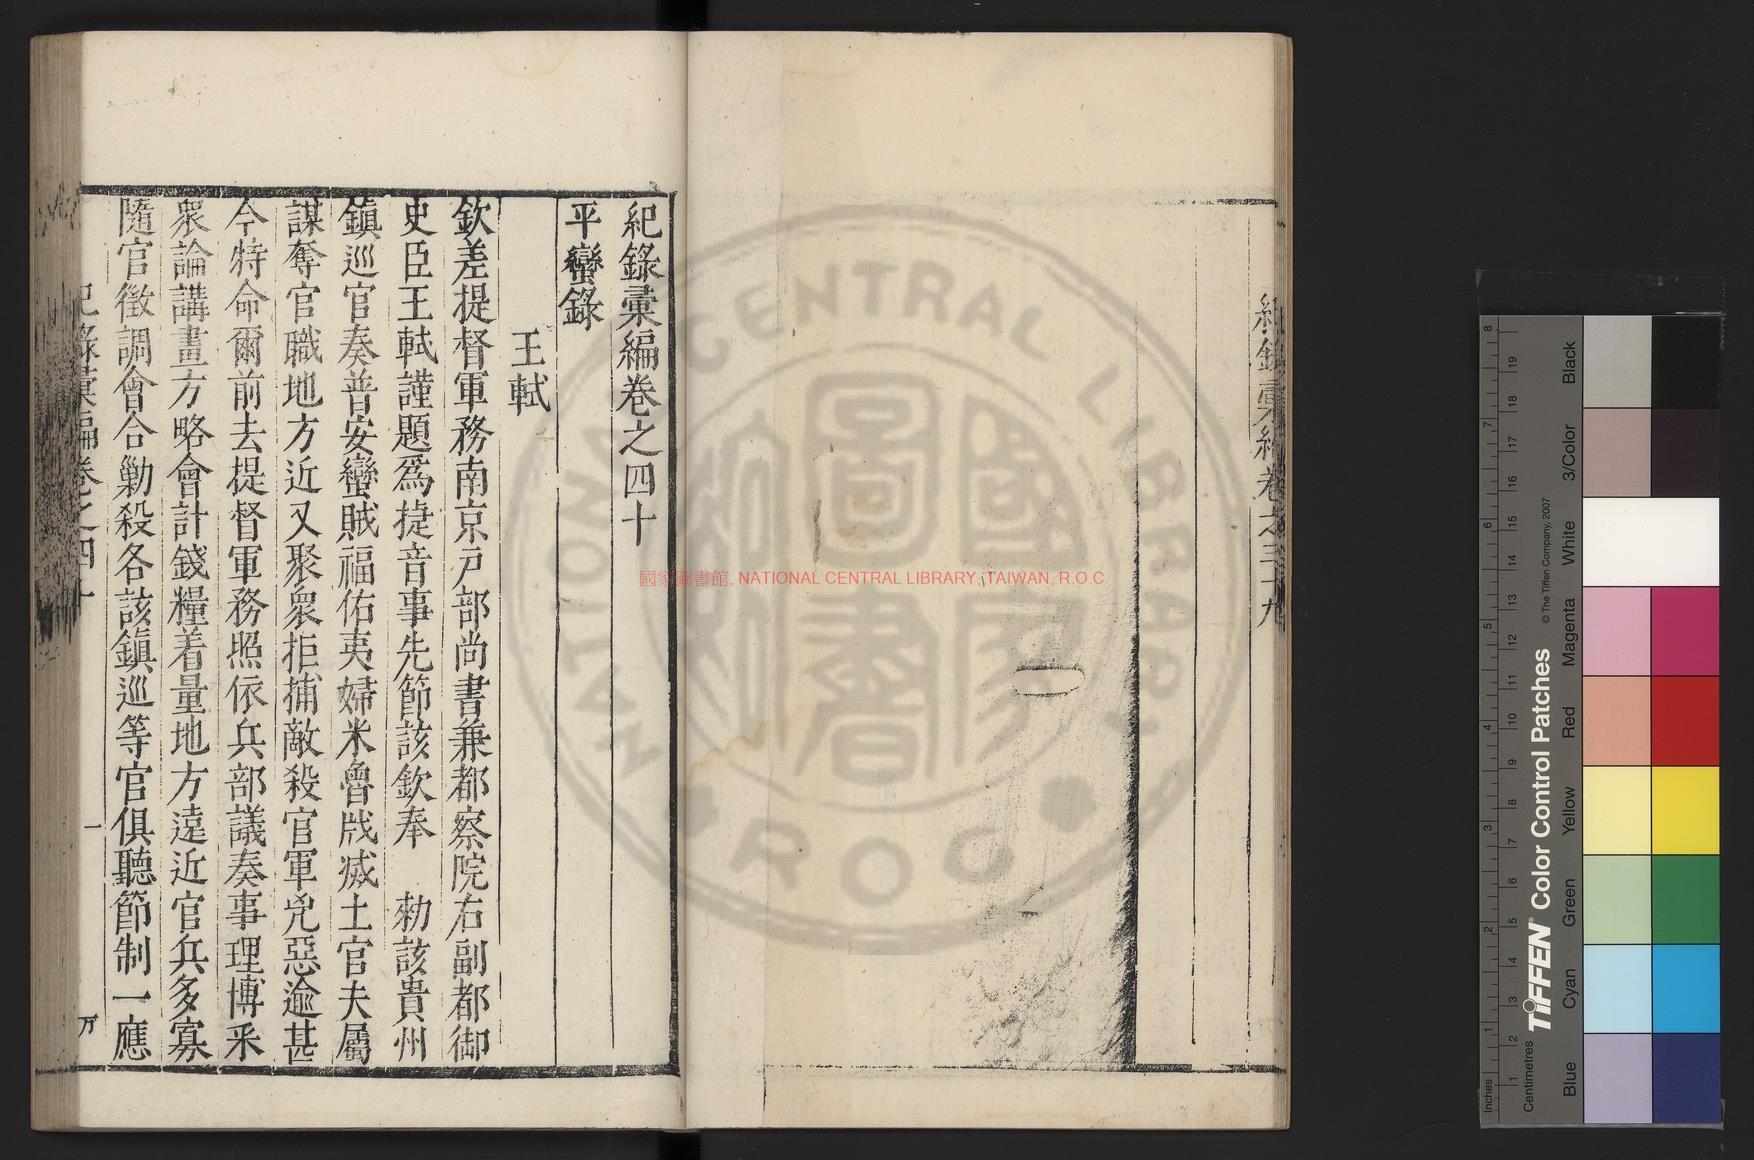 紀錄彙編卷之四十
平蠻錄
王軾
欽差提督軍務南京戶部尚書兼都察院右副都御
史臣王軾謹題爲捷音事先節該欽奉　勑該貴州
鎮巡官奏普安蠻賊福佑夷婦米魯戕滅土官夫屬
謀奪官職地方近又聚衆拒捕敵殺官軍兇惡逾甚
今特命爾前去提督軍務照依兵部議奏事理博采
衆論講畫方略會計錢糧着量地方遠近官兵多寡
隨官徵調會合勦殺各該鎮巡等官俱聽節制一應
紀錄彙編卷之四十
一
万
紀錄彙編卷之三十九
國家圖書館, NATIONAL CENTRAL LIBRARY, TAIWAN, R.O.C
NATIONAL CENTRAL LIBRARY
R O C
TIFFEN Color Control Patches
© The Tiffen Company, 2007
Inches
Centimetres
Blue
Cyan
Green
Yellow
Red
Magenta
White
3/Color
Black
1 2 3 4 5 6 7 8
1 2 3 4 5 6 7 8 9 10 11 12 13 14 15 16 17 18 19